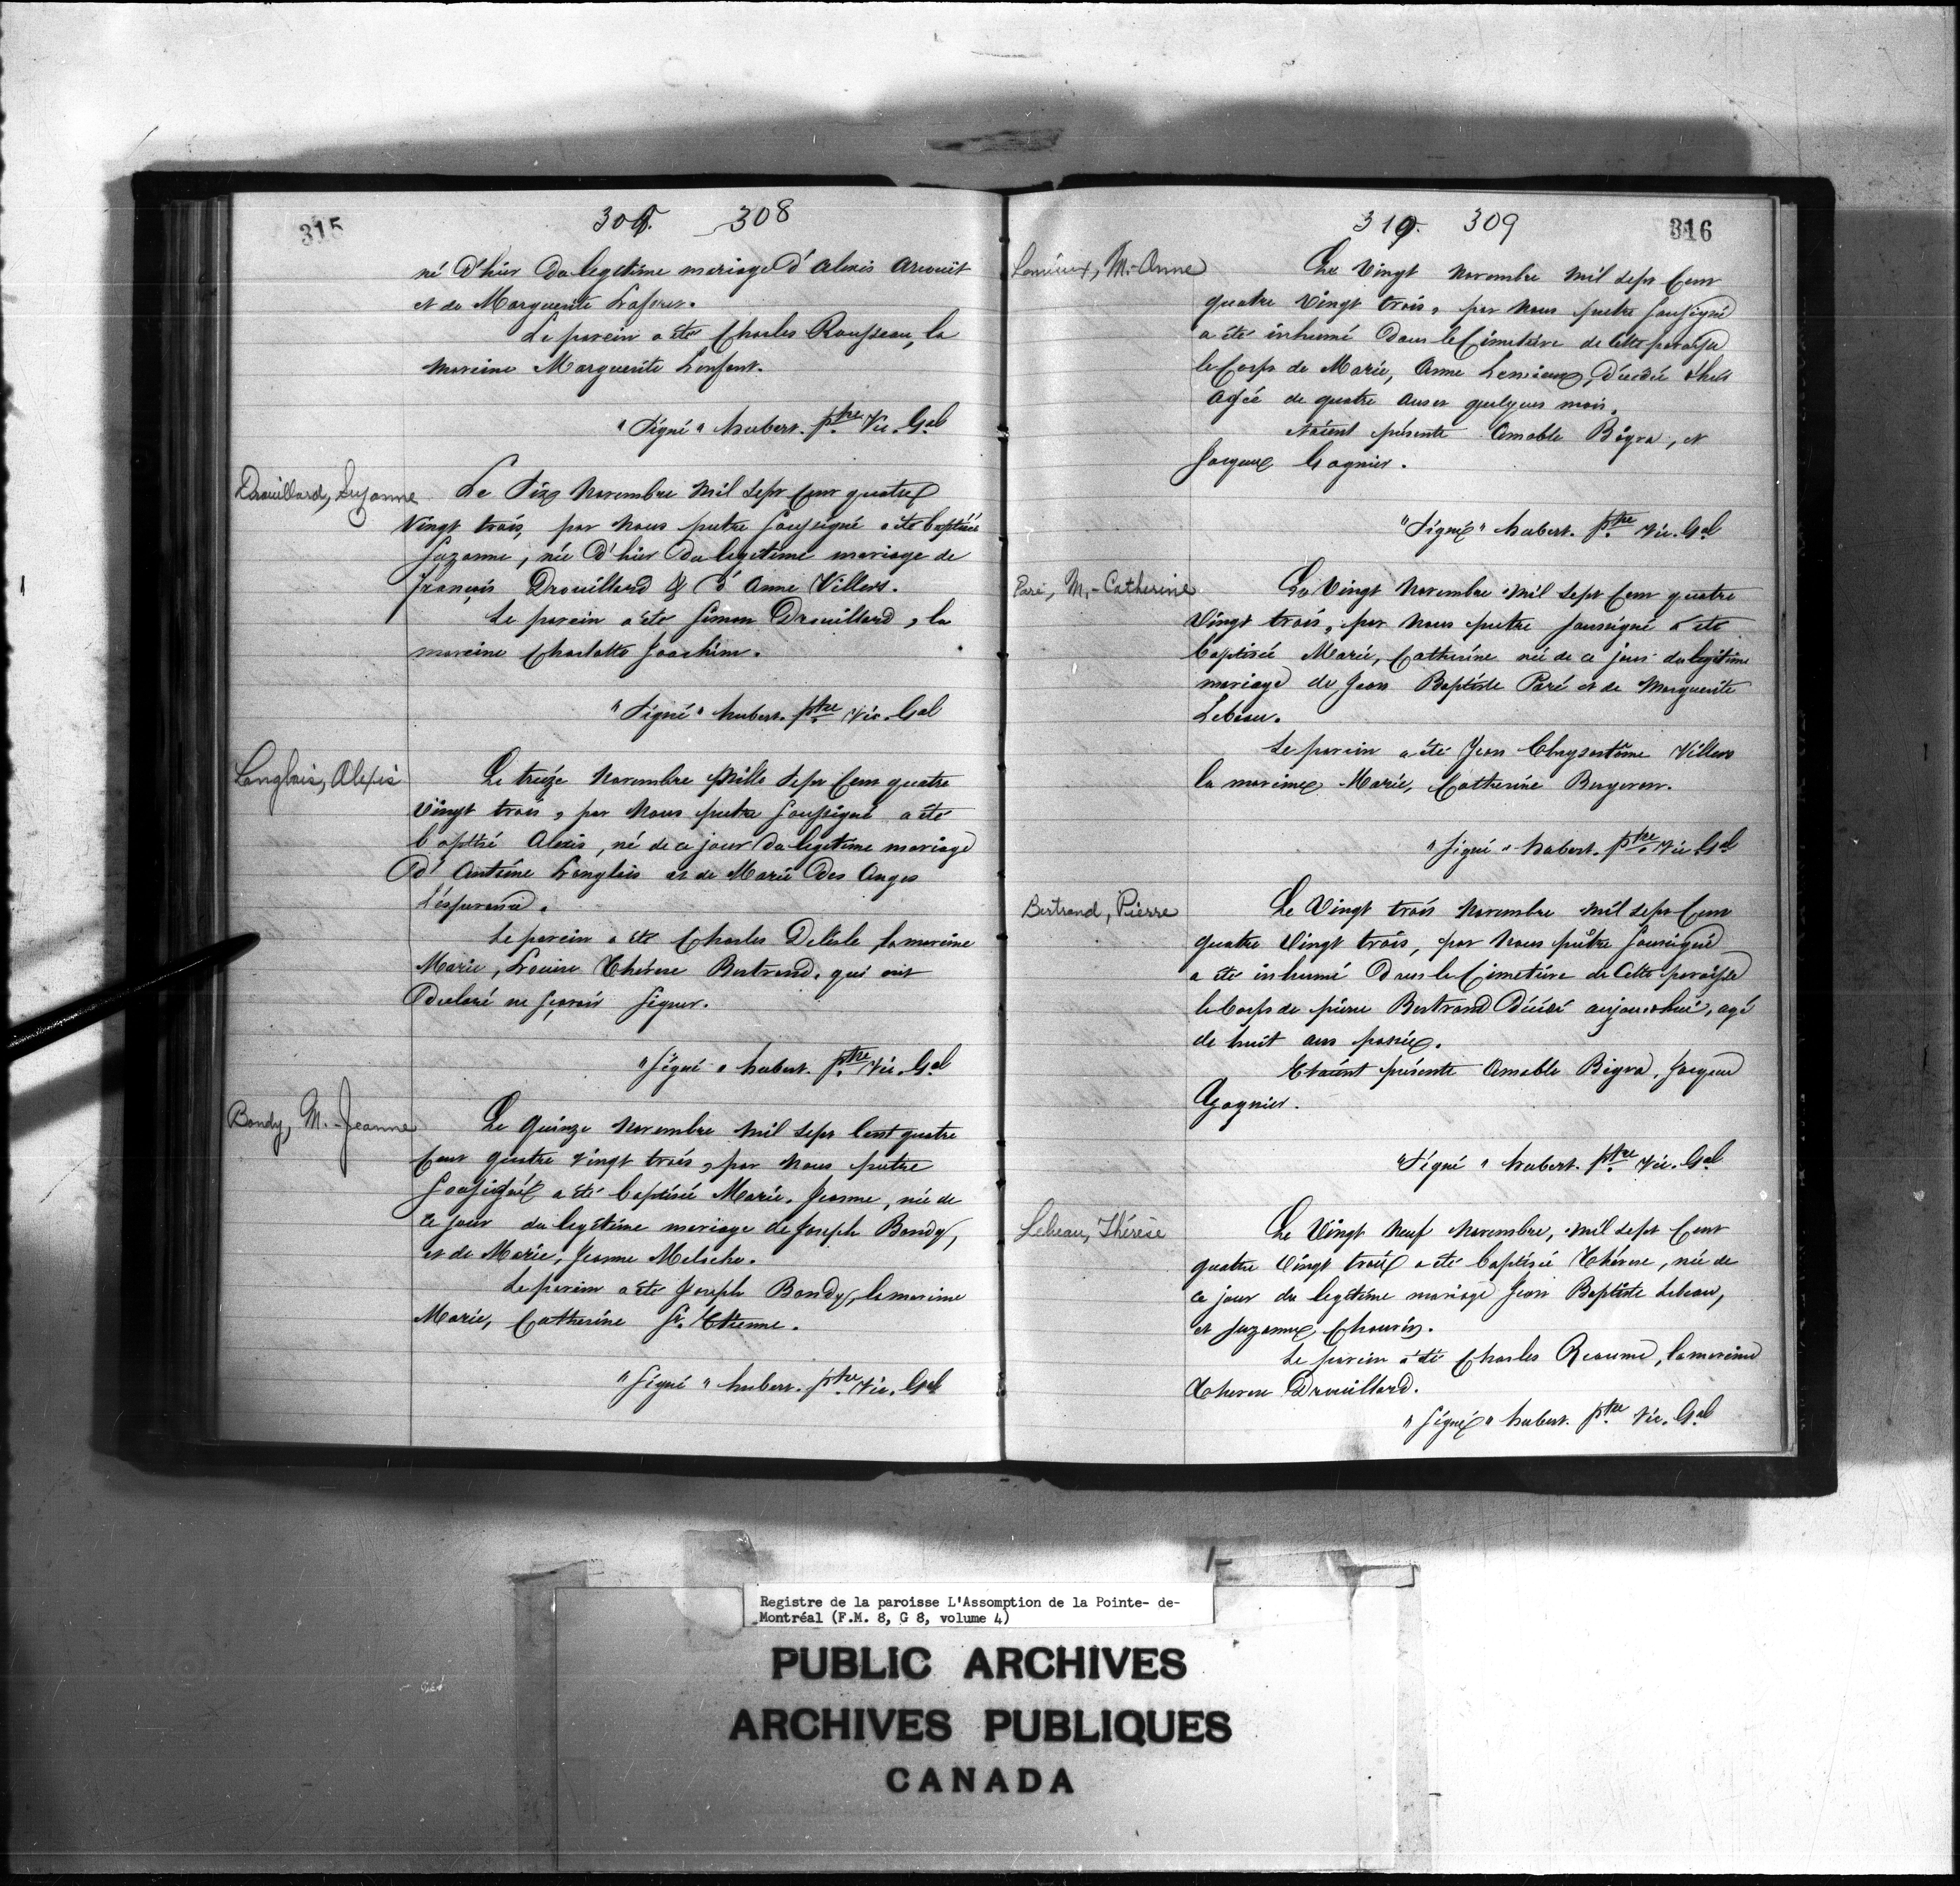 315
308
né d'hier du legitime mariage d'alexis
et de Marguerite
Le parein a été Charles Rousseau, la
mareine Marguerite Lenfent.
"Signé" hubert. ptre Vic. Gal
Drouillard, Suzanne
Le dix Novembre mil sept Cent quatre
Vingt trois, par Nous pretre soussigné a été baptisée
Suzanne, née d'hier du legetime mariage de
François Drouillard & d'Anne Villers.
Le parein a été Simon Drouillard, la
mareine Charlotte Joachim.
"Signé" hubert. ptre Vic. Gal
Langlais, Alexis
Le treize Novembre Mille Sept Cent quatre
Vingt trois, par Nous pretre soussigné a été
baptisé Alexis, né de ce jour du legetime mariage
d'Antoine Langlais et de Marie des Anges
L'ésperence.
Le parein a été Charles Delisle la mareine
Marie, Louise Thérese Bertrand. qui ont
declaré ne sçavoir signer.
"Signé" hubert. ptre Vic. Gal
Bondy, M.-Jeanne
Le Quinze Novembre mil Sept Cent quatre
Cent quatre vingt trois, par Nous pretre
Soussigné a été baptisée Marie. Jeanne, née de
ce jour du legetime mariage de Joseph Bondy,
et de Marie, Jeanne Meloche.
Le parein a été Joseph Bondy, la mareine
Marie, Catherine St. Etienne.
"Signé" hubert. ptre Vic. Gal
319. 309
316
Lemieux, M.-Anne
Le Vingt Novembre mil sept Cent
quatre Vingt trois, par Nous pretre Soussigné
a été inhumé dans le Cimetiére de cette paroisse
le Corps de Marie, Anne Lemieux, décédée d'hier
Agée de quatre ans et quelques mois.
étaient présents Amable Bigra, et
Jacques Gagnier.
"Signé" hubert. ptre Vic. Gal
Paré, M.-Catherine
Le Vingt Novembre mil sept Cent quatre
Vingt trois, par Nous pretre soussigné a été
baptisée Marie, Catherine née de ce jour du legitime
mariage de Jean Baptiste Paré et de Marguerite
Lebeau.
Le parein a été Jean Chrysostôme Villers
la mareine Marie, Catherine Bergeron.
"Signé" hubert. ptre Vic. Gal
Bertrand, Pierre
Le Vingt trois Novembre mil sept Cent
quatre Vingt trois, par Nous prêtre soussigné
a été inhumé dans le Cimetiére de Cette paroisse
le Corps de pierre Bertrand décédé aujourdhui, agé
de huit ans passés.
Etaient présents Amable Bigra, Jacques
Gagnier.
"Signé" hubert. ptre Vic. Gal
Lebeau, Thérèse
Le Vingt Neuf Novembre, mil sept Cent
quatre Vingt trois a été baptisée Thérese, née de
ce jour du legétime mariage Jean Baptiste Lebeau,
et Suzanne Chouvin.
Le parein a été Charles Reaume, la mareine
Therese Drouillard.
"Signé" hubert. ptre Vic. Gal
Registre de la paroisse L'Assomption de la Pointe- de-
Montréal (F.M. 8, G 8, volume 4)
PUBLIC ARCHIVES
ARCHIVES PUBLIQUES
CANADA